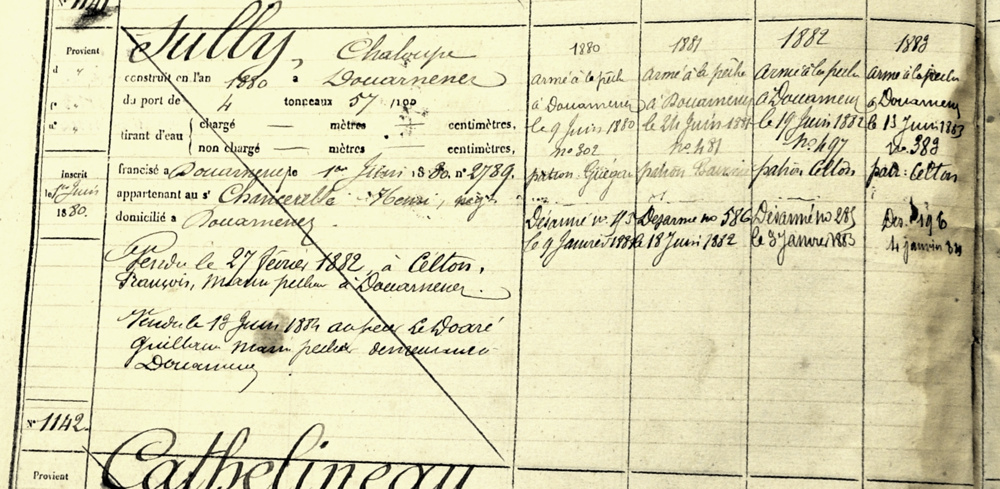 Sully, Chaloupe
Provient
construit en l'an 1880 à Douarnenez
du port de 4 tonneaux 57/100
tirant d'eau { chargé — mètres — centimètres,
non chargé — mètres — centimètres,
francisé à Douarnenez le 1er Juin 1880. n° 2789.
inscrit
le 1er Juin
1880.
appartenant au sr Chancerelle Henri, négt
domicilié à Douarnenez
Vendu le 27 février 1882, à Celton,
François, marin pêcheur à Douarnenez.
Vendu le 13 Juin 1884 au sieur Le Doaré
Guillaume marin pêcheur demeurant
Douarnenez
1880
Armé à la pêche
à Douarnenez
le 9 Juin 1880
n° 302
patron Guégan
Désarmé n°
le 9 Janvier 1881
1881
Armé à la pêche
à Douarnenez
le 24 Juin 1881
n° 481
patron
Désarmé n° 586
le 18 Juin 1882
1882
Armé à la pêche
à Douarnenez
le 19 Juin 1882
n° 497
patron Celton
Désarmé n° 285
le 3 Janvier 1883
1883
Armé à la pêche
à Douarnenez
le 13 Juin 1883
n° 383
patr. Celton
Des. 196
4 janvier 84
N° 1142.
Cathelineau
Provient